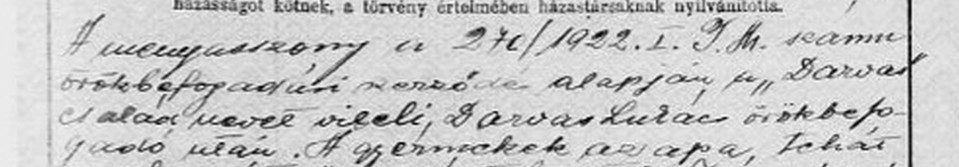 házasságot kötnek, a törvény értelmében házastársaknak nyilvánította.
A menyasszony a 270/1922. I. I. M. számu
örökbefogadási szerződés alapján a „Darvas"
család nevét viseli, Darvas Lukács örökbefo-
gadó után. A gyermekek az apa, tehát